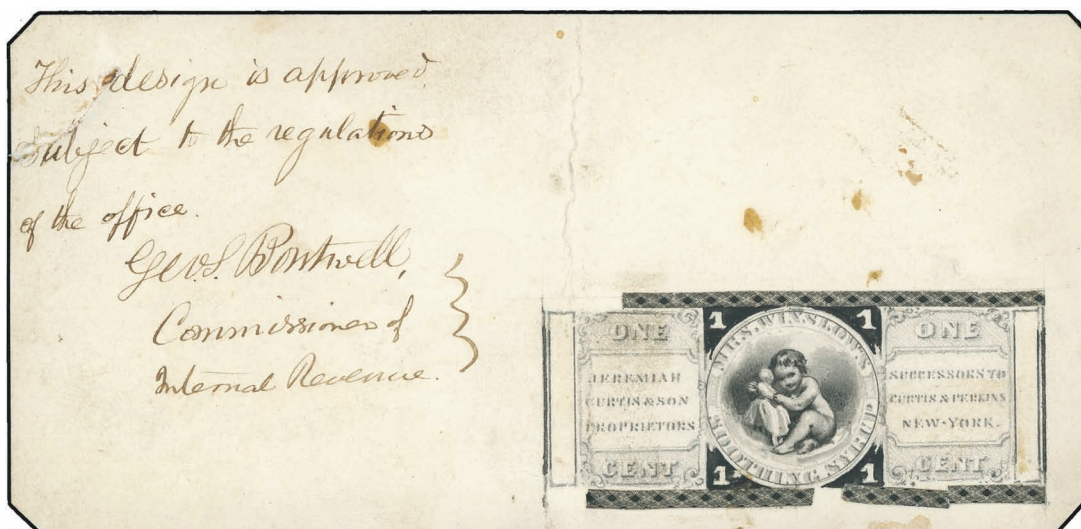 This design is approved
subject to the regulations
of the office.
Geo. S. Boutwell,
Commissioner of
Internal Revenue.
ONE
JEREMIAH
CURTIS & SON
PROPRIETORS
CENT
1 1
MRS. WINSLOW'S
SOOTHING SYRUP
1 1
ONE
SUCCESSORS TO
CURTIS & PERKINS
NEW-YORK.
CENT